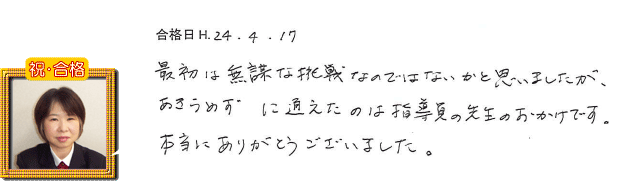 合格日 H.24.4.17
祝・合格
最初は無謀な挑戦なのではないかと思いましたが、
あきらめず に通えたのは指導員の先生のおかげです。
本当にありがとうございました。